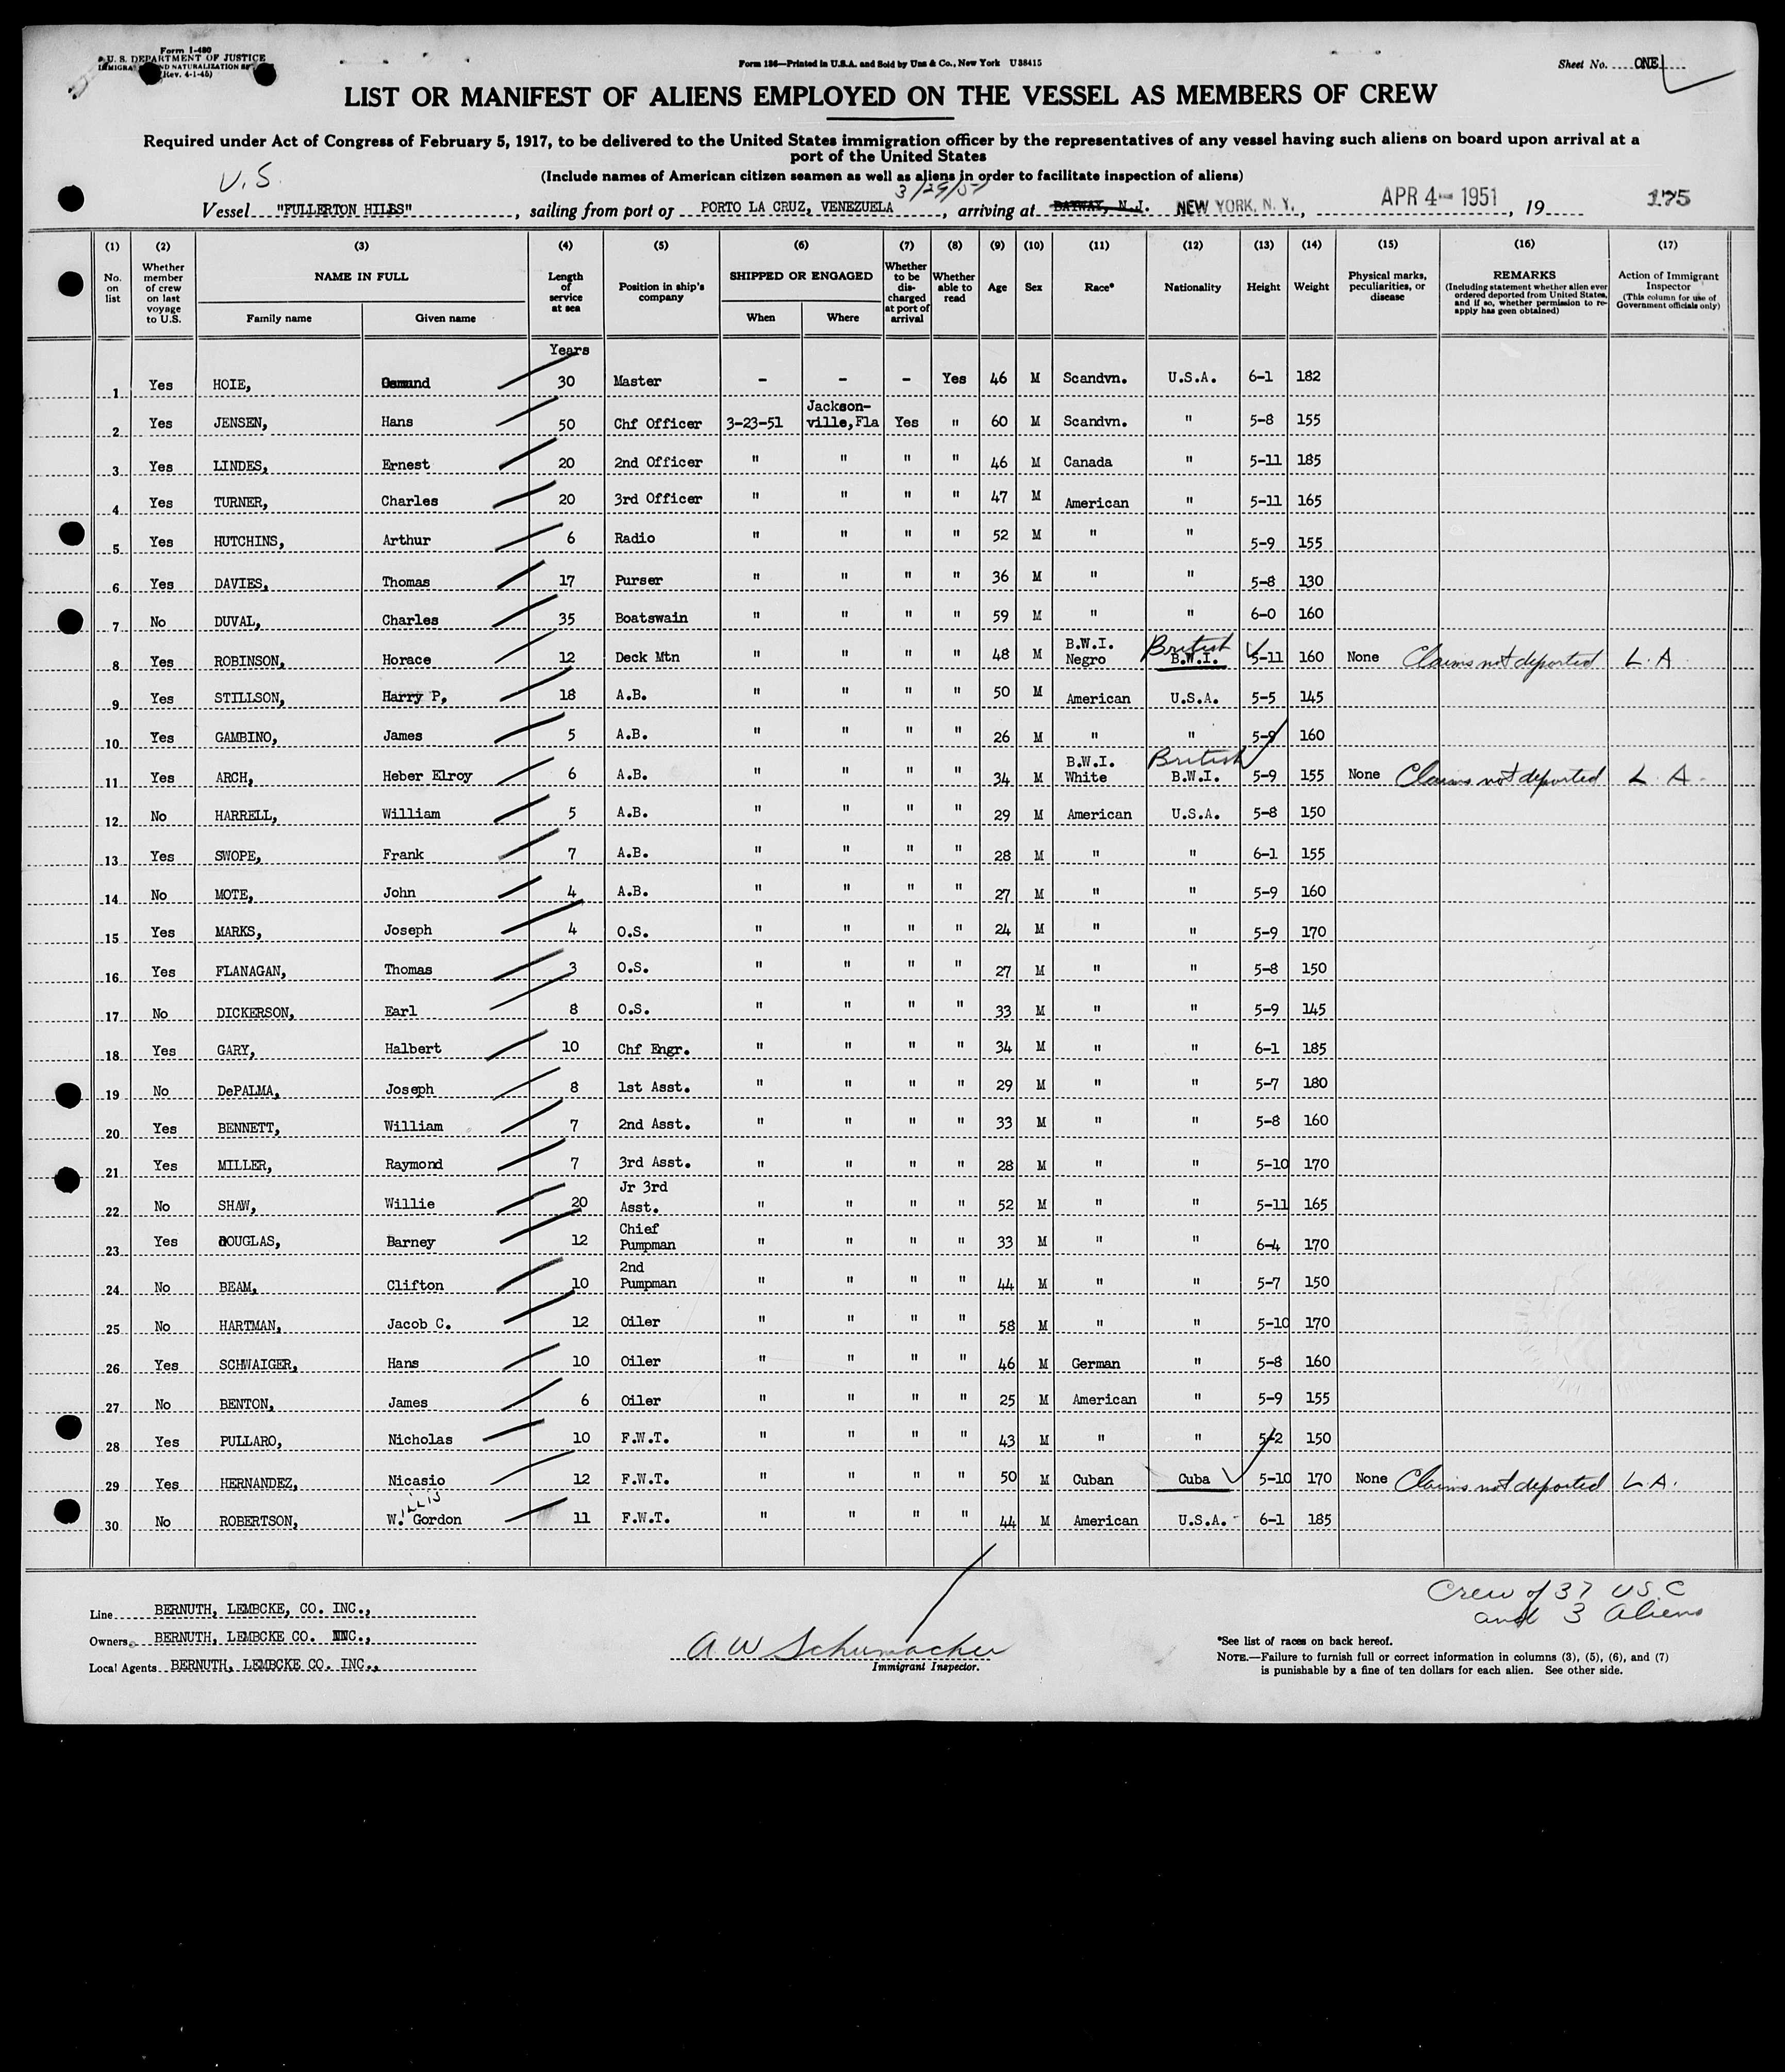 Form I-480
U. S. DEPARTMENT OF JUSTICE
(Rev. 4-1-45)
Form 186—Printed in U.S.A. and Sold by Unz & Co., New York U38415
Sheet No. ONE
LIST OR MANIFEST OF ALIENS EMPLOYED ON THE VESSEL AS MEMBERS OF CREW
Required under Act of Congress of February 5, 1917, to be delivered to the United States immigration officer by the representatives of any vessel having such aliens on board upon arrival at a
port of the United States
(Include names of American citizen seamen as well as aliens in order to facilitate inspection of aliens)
U.S. 3/29/51
Vessel "FULLERTON HILLS", sailing from port of PORTO LA CRUZ, VENEZUELA, arriving at BAYWAY, N.J. NEW YORK, N. Y., APR 4 - 1951, 19 175
(1) (2) (3) (4) (5) (6) (7) (8) (9) (10) (11) (12) (13) (14) (15) (16) (17)
No. on list
Whether member of crew on last voyage to U.S.
NAME IN FULL
Family name Given name
Length of service at sea
Position in ship's company
SHIPPED OR ENGAGED
When Where
Whether to be discharged at port of arrival
Whether able to read
Age
Sex
Race*
Nationality
Height
Weight
Physical marks, peculiarities, or disease
REMARKS
(Including statement whether alien ever ordered deported from United States, and if so, whether permission to re-apply has geen obtained)
Action of Immigrant Inspector
(This column for use of Government officials only)
Years
1 Yes HOIE, Osmund 30 Master - - - Yes 46 M Scandvn. U.S.A. 6-1 182
2 Yes JENSEN, Hans 50 Chf Officer 3-23-51 Jackson-ville, Fla Yes " 60 M Scandvn. " 5-8 155
3 Yes LINDES, Ernest 20 2nd Officer " " " " 46 M Canada " 5-11 185
4 Yes TURNER, Charles 20 3rd Officer " " " " 47 M American " 5-11 165
5 Yes HUTCHINS, Arthur 6 Radio " " " " 52 M " " 5-9 155
6 Yes DAVIES, Thomas 17 Purser " " " " 36 M " " 5-8 130
7 No DUVAL, Charles 35 Boatswain " " " " 59 M " " 6-0 160
8 Yes ROBINSON, Horace 12 Deck Mtn " " " " 48 M B.W.I. Negro British B.W.I. 5-11 160 None Claims not deported L.A.
9 Yes STILLSON, Harry P, 18 A.B. " " " " 50 M American U.S.A. 5-5 145
10 Yes GAMBINO, James 5 A.B. " " " " 26 M " " 5-9 160
11 Yes ARCH, Heber Elroy 6 A.B. " " " " 34 M B.W.I. White British B.W.I. 5-9 155 None Claims not deported L.A.
12 No HARRELL, William 5 A.B. " " " " 29 M American U.S.A. 5-8 150
13 Yes SWOPE, Frank 7 A.B. " " " " 28 M " " 6-1 155
14 No MOTE, John 4 A.B. " " " " 27 M " " 5-9 160
15 Yes MARKS, Joseph 4 O.S. " " " " 24 M " " 5-9 170
16 Yes FLANAGAN, Thomas 3 O.S. " " " " 27 M " " 5-8 150
17 No DICKERSON, Earl 8 O.S. " " " " 33 M " " 5-9 145
18 Yes GARY, Halbert 10 Chf Engr. " " " " 34 M " " 6-1 185
19 No DePALMA, Joseph 8 1st Asst. " " " " 29 M " " 5-7 180
20 Yes BENNETT, William 7 2nd Asst. " " " " 33 M " " 5-8 160
21 Yes MILLER, Raymond 7 3rd Asst. " " " " 28 M " " 5-10 170
22 No SHAW, Willie 20 Jr 3rd Asst. " " " " 52 M " " 5-11 165
23 Yes DOUGLAS, Barney 12 Chief Pumpman " " " " 33 M " " 6-4 170
24 No BEAM, Clifton 10 2nd Pumpman " " " " 44 M " " 5-7 150
25 No HARTMAN, Jacob C. 12 Oiler " " " " 58 M " " 5-10 170
26 Yes SCHWAIGER, Hans 10 Oiler " " " " 46 M German " 5-8 160
27 No BENTON, James 6 Oiler " " " " 25 M American " 5-9 155
28 Yes PULLARO, Nicholas 10 F.W.T. " " " " 43 M " " 5-2 150
29 Yes HERNANDEZ, Nicasio 12 F.W.T. " " " " 50 M Cuban Cuba 5-10 170 None Claims not deported L.A.
30 No ROBERTSON, W.illis Gordon 11 F.W.T. " " " " 44 M American U.S.A. 6-1 185
Crew of 37 USC
and 3 Aliens
Line BERNUTH, LEMBCKE, CO. INC.,
Owners BERNUTH, LEMBCKE CO. INC.,
Local Agents BERNUTH, LEMBCKE CO. INC.,
A W Schumacher
Immigrant Inspector.
*See list of races on back hereof.
NOTE.—Failure to furnish full or correct information in columns (3), (5), (6), and (7)
is punishable by a fine of ten dollars for each alien. See other side.